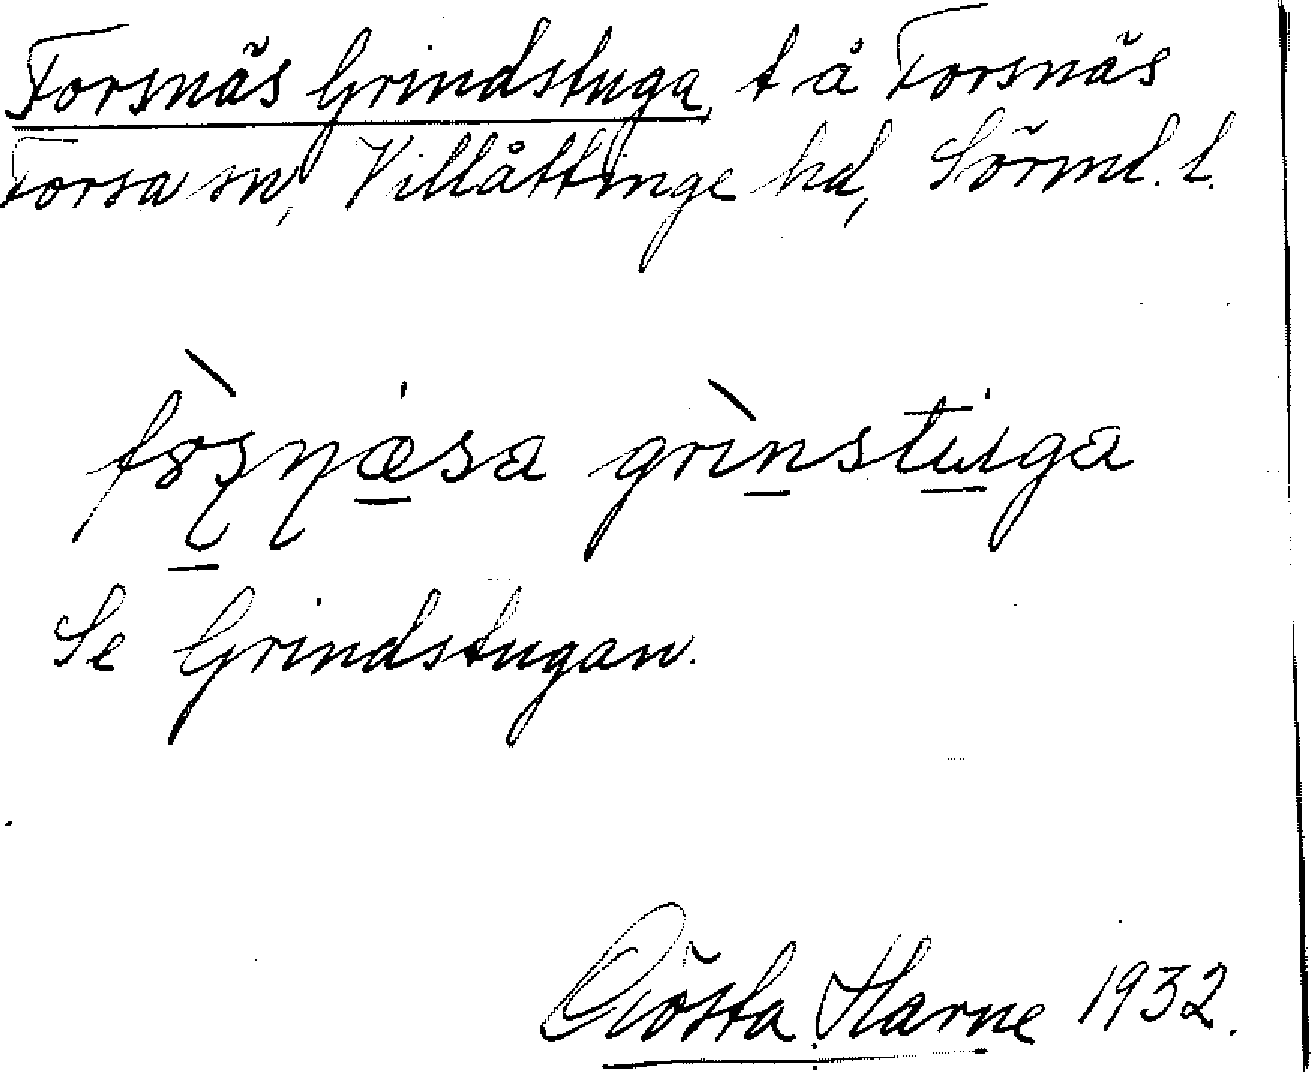 Forsnäs Grindstuga, t å Forsnäs
Forsa sn, Villåttinge hd, Sörml. l.
fòʂɳæsa grìnstuga
Se Grindstugan.
Gösta Harne 1932.